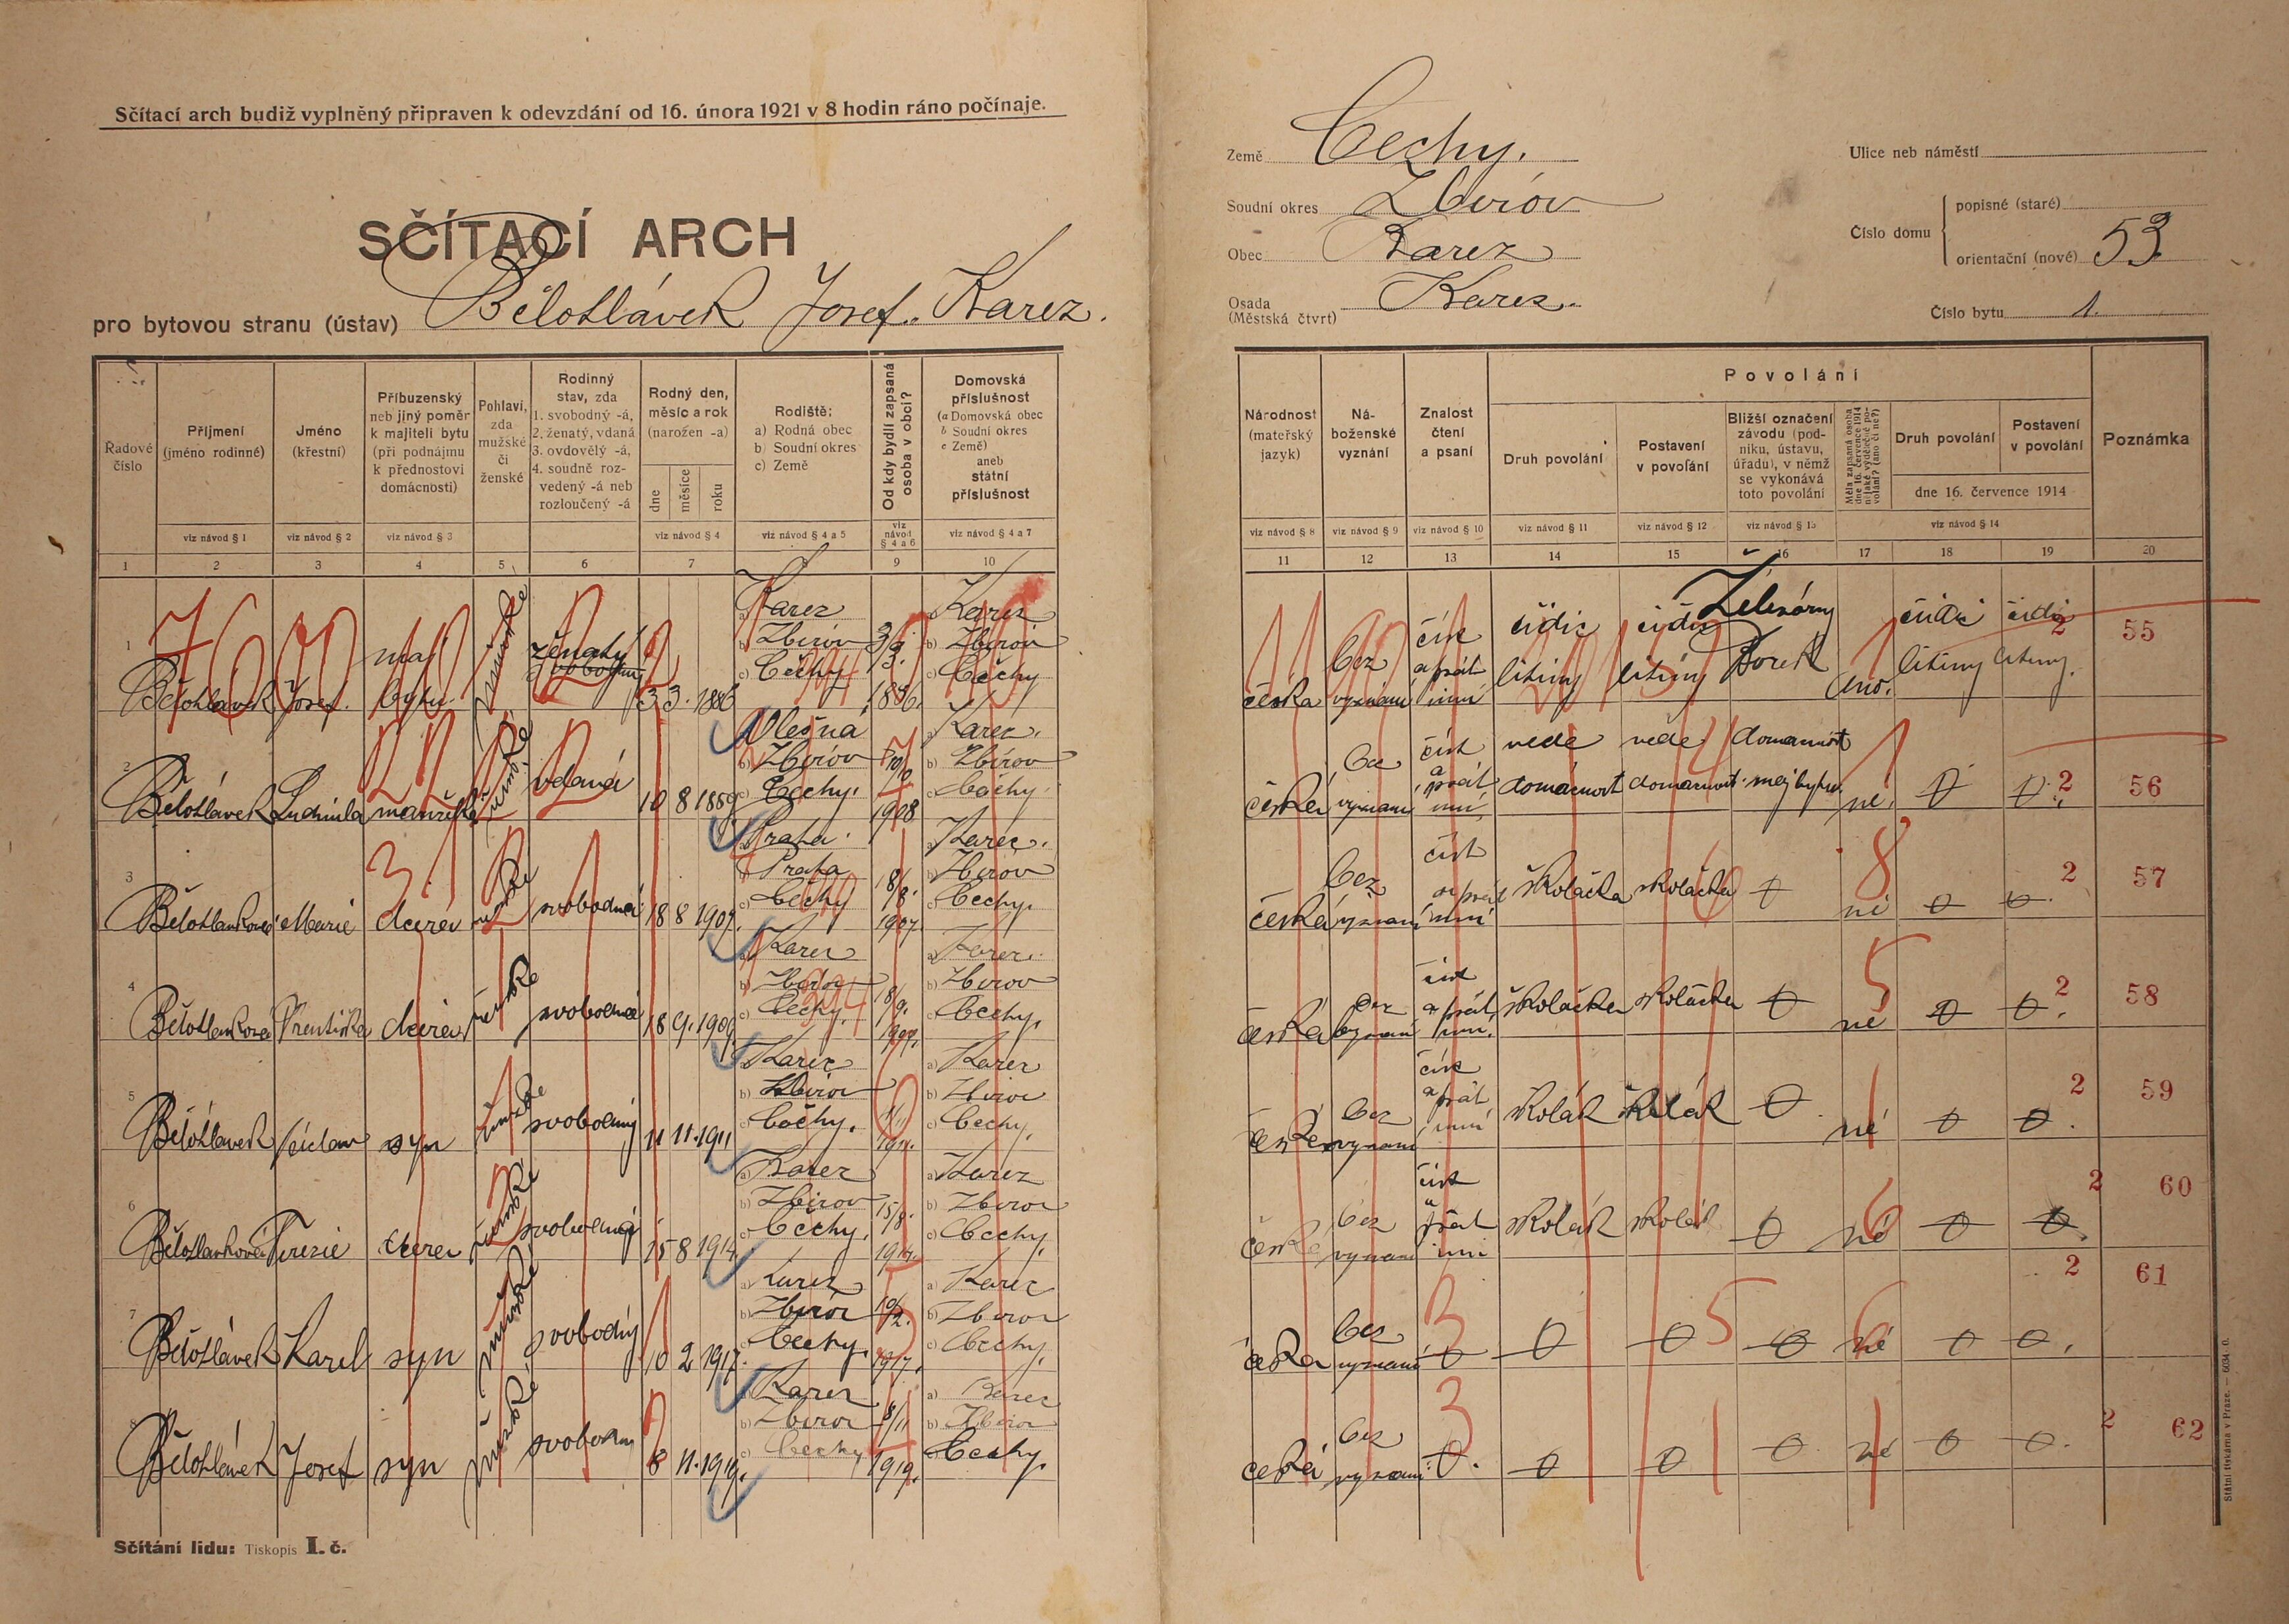 Sčítací arch budiž vyplněný připraven k odevzdání od 16. února 1921 v 8 hodin ráno počínaje.
SČÍTACÍ ARCH
pro bytovou stranu (ústav) Bělohlávek Josef. Karez.
Země Čechy.
Soudní okres Zbirov
Obec Karez
Osada Karez.
(Městská čtvrt)
Ulice neb náměstí
Číslo domu
popisné (staré)
orientační (nové) 53.
Číslo bytu 1.
Řadové číslo
Příjmení (jméno rodinné)
Jméno (křestní)
Příbuzenský neb jiný poměr k majiteli bytu (při podnájmu k přednostovi domácnosti)
Pohlaví, zda mužské či ženské
Rodinný stav, zda 1. svobodný -á, 2. ženatý, vdaná 3. ovdovělý -á, 4. soudně rozvedený -á neb rozloučený -á
Rodný den, měsíc a rok (narozen -a)
dne měsíce roku
Rodiště: a) Rodná obec b) Soudní okres c) Země
Od kdy bydlí zapsaná osoba v obci?
Domovská příslušnost (a Domovská obec b Soudní okres c Země) aneb státní příslušnost
viz návod § 1
viz návod § 2
viz návod § 3
viz návod § 4
viz návod § 4 a 5
viz návod § 4 a 6
viz návod § 4 a 7
1 2 3 4 5 6 7 8 9 10
Národnost (mateřský jazyk)
Náboženské vyznání
Znalost čtení a psaní
Povolání
Druh povolání
Postavení v povolání
Bližší označení závodu (podniku, ústavu, úřadu), v němž se vykonává toto povolání
Měla zapsaná osoba dne 16. července 1914 nějaké výdělečné povolání? (ano či ne?)
Druh povolání
Postavení v povolání
dne 16. července 1914
Poznámka
viz návod § 8
viz návod § 9
viz návod § 10
viz návod § 11
viz návod § 12
viz návod § 13
viz návod § 14
11 12 13 14 15 16 17 18 19 20
1 Bělohlávek Josef. maj. bytu. mužské ženatý 3 3. 1886 a) Karez b) Zbirov c) Čechy 3/3. 1886. a) Karez b) Zbirov c) Čechy
česká bez vyznání číst a psát umí Železárny Borek ano. 2 55
2 Bělohlávek Ludmila manželka ženské vdaná 10 8 a) Olešná b) Zbirov c) Čechy. 1908 a) Karez. b) Zbirov c) Čechy.
česká bez vyznání číst a psát umí, vede domácnost vede domácnost domácnost maj bytu. ne. 0 0. 2 56
3 Bělohlavková Marie dcera ženské svobodná 18 8 1907. a) Praha. b) Praha c) Čechy 18/8. 1907. a) Karez. b) Zbirov c) Čechy.
česká bez vyznaní číst a psát umí školačka školačka 0 ne 0 0. 2 57
4 Bělohlavková dcera ženské svobodná 18 9. 1909. a) Karez b) Zbirov c) Čechy. 18/9. a) Karez. b) Zbirov c) Čechy.
česká bez vyznaní číst a psát umí. školačka školačka 0 ne 0 0. 2 58
5 Bělohlávek Václav syn mužské svobodný 11 11. 1911 a) Karez b) Zbirov c) Čechy. 11/11 1911. a) Karez b) Zbirov c) Čechy.
česká bez vyznaní číst a psát umí školák školák 0. ne 0 0. 2 59
6 Bělohlavková Terezie dcera ženské 15 8 1914. a) Karez b) Zbirov c) Čechy. 15/8. 1914. a) Karez b) Zbirov c) Čechy.
česká bez vyznaní číst a psát umí školák školák 0 ne 0 0. 2 60
7 Bělohlávek Karel syn mužské svobodný 10 2 1917. a) Karez b) Zbirov c) Čechy. 10/2. 1917. a) Karez b) Zbirov c) Čechy.
česká bez vyznaní 0 0 0 0 ne 0 0. 2 61
8 Bělohlávek Josef syn mužské svobodný 8 11. 1919. a) Karez b) Zbirov c) Čechy 8/11 1919. a) Karez b) Zbirov c) Čechy.
česká bez vyznaní 0. 0 0 0. ne 0 0. 2 62
Sčítání lidu: Tiskopis I. č.
Státní tiskárna v Praze. — 6034-0.